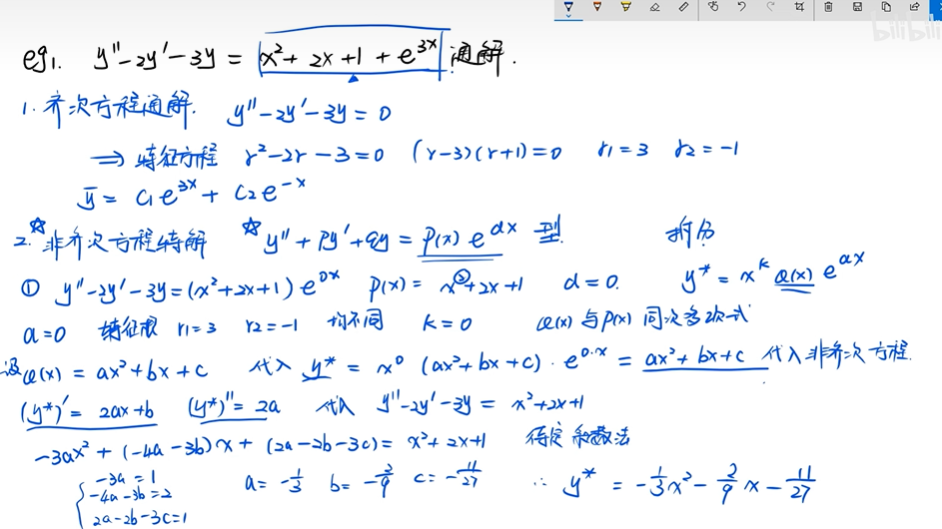 bilibili
eg1. y''-2y'-3y = x²+2x+1+e^{3x} 通解.
1. 齐次方程通解. y''-2y'-3y=0
⇒ 特征方程 r²-2r-3=0 (r-3)(r+1)=0 r1=3 r2=-1
ȳ = C1e^{3x} + C2e^{-x}
2. ☆非齐次方程特解 ☆ y''+Py'+qy = P(x)e^{αx} 型. 拆分
① y''-2y'-3y=(x²+2x+1)e^{0x} P(x)= x²+2x+1 α=0. y* = x^k Q(x) e^{αx}
α=0 特征根 r1=3 r2=-1 均不同 k=0 Q(x)与P(x)同次多项式
设Q(x) = ax²+bx+c 代入 y* = x⁰(ax²+bx+c)·e^{0·x} = ax²+bx+c 代入非齐次方程.
(y*)' = 2ax+b (y*)''=2a 代入 y''-2y'-3y = x²+2x+1
-3ax²+(-4a-3b)x+(2a-2b-3c)= x²+2x+1 待定系数法
{ -3a=1
-4a-3b=2 a=-1/3 b=-2/9 c=-11/27 ∴ y* = -1/3x²-2/9x-11/27
2a-2b-3c=1